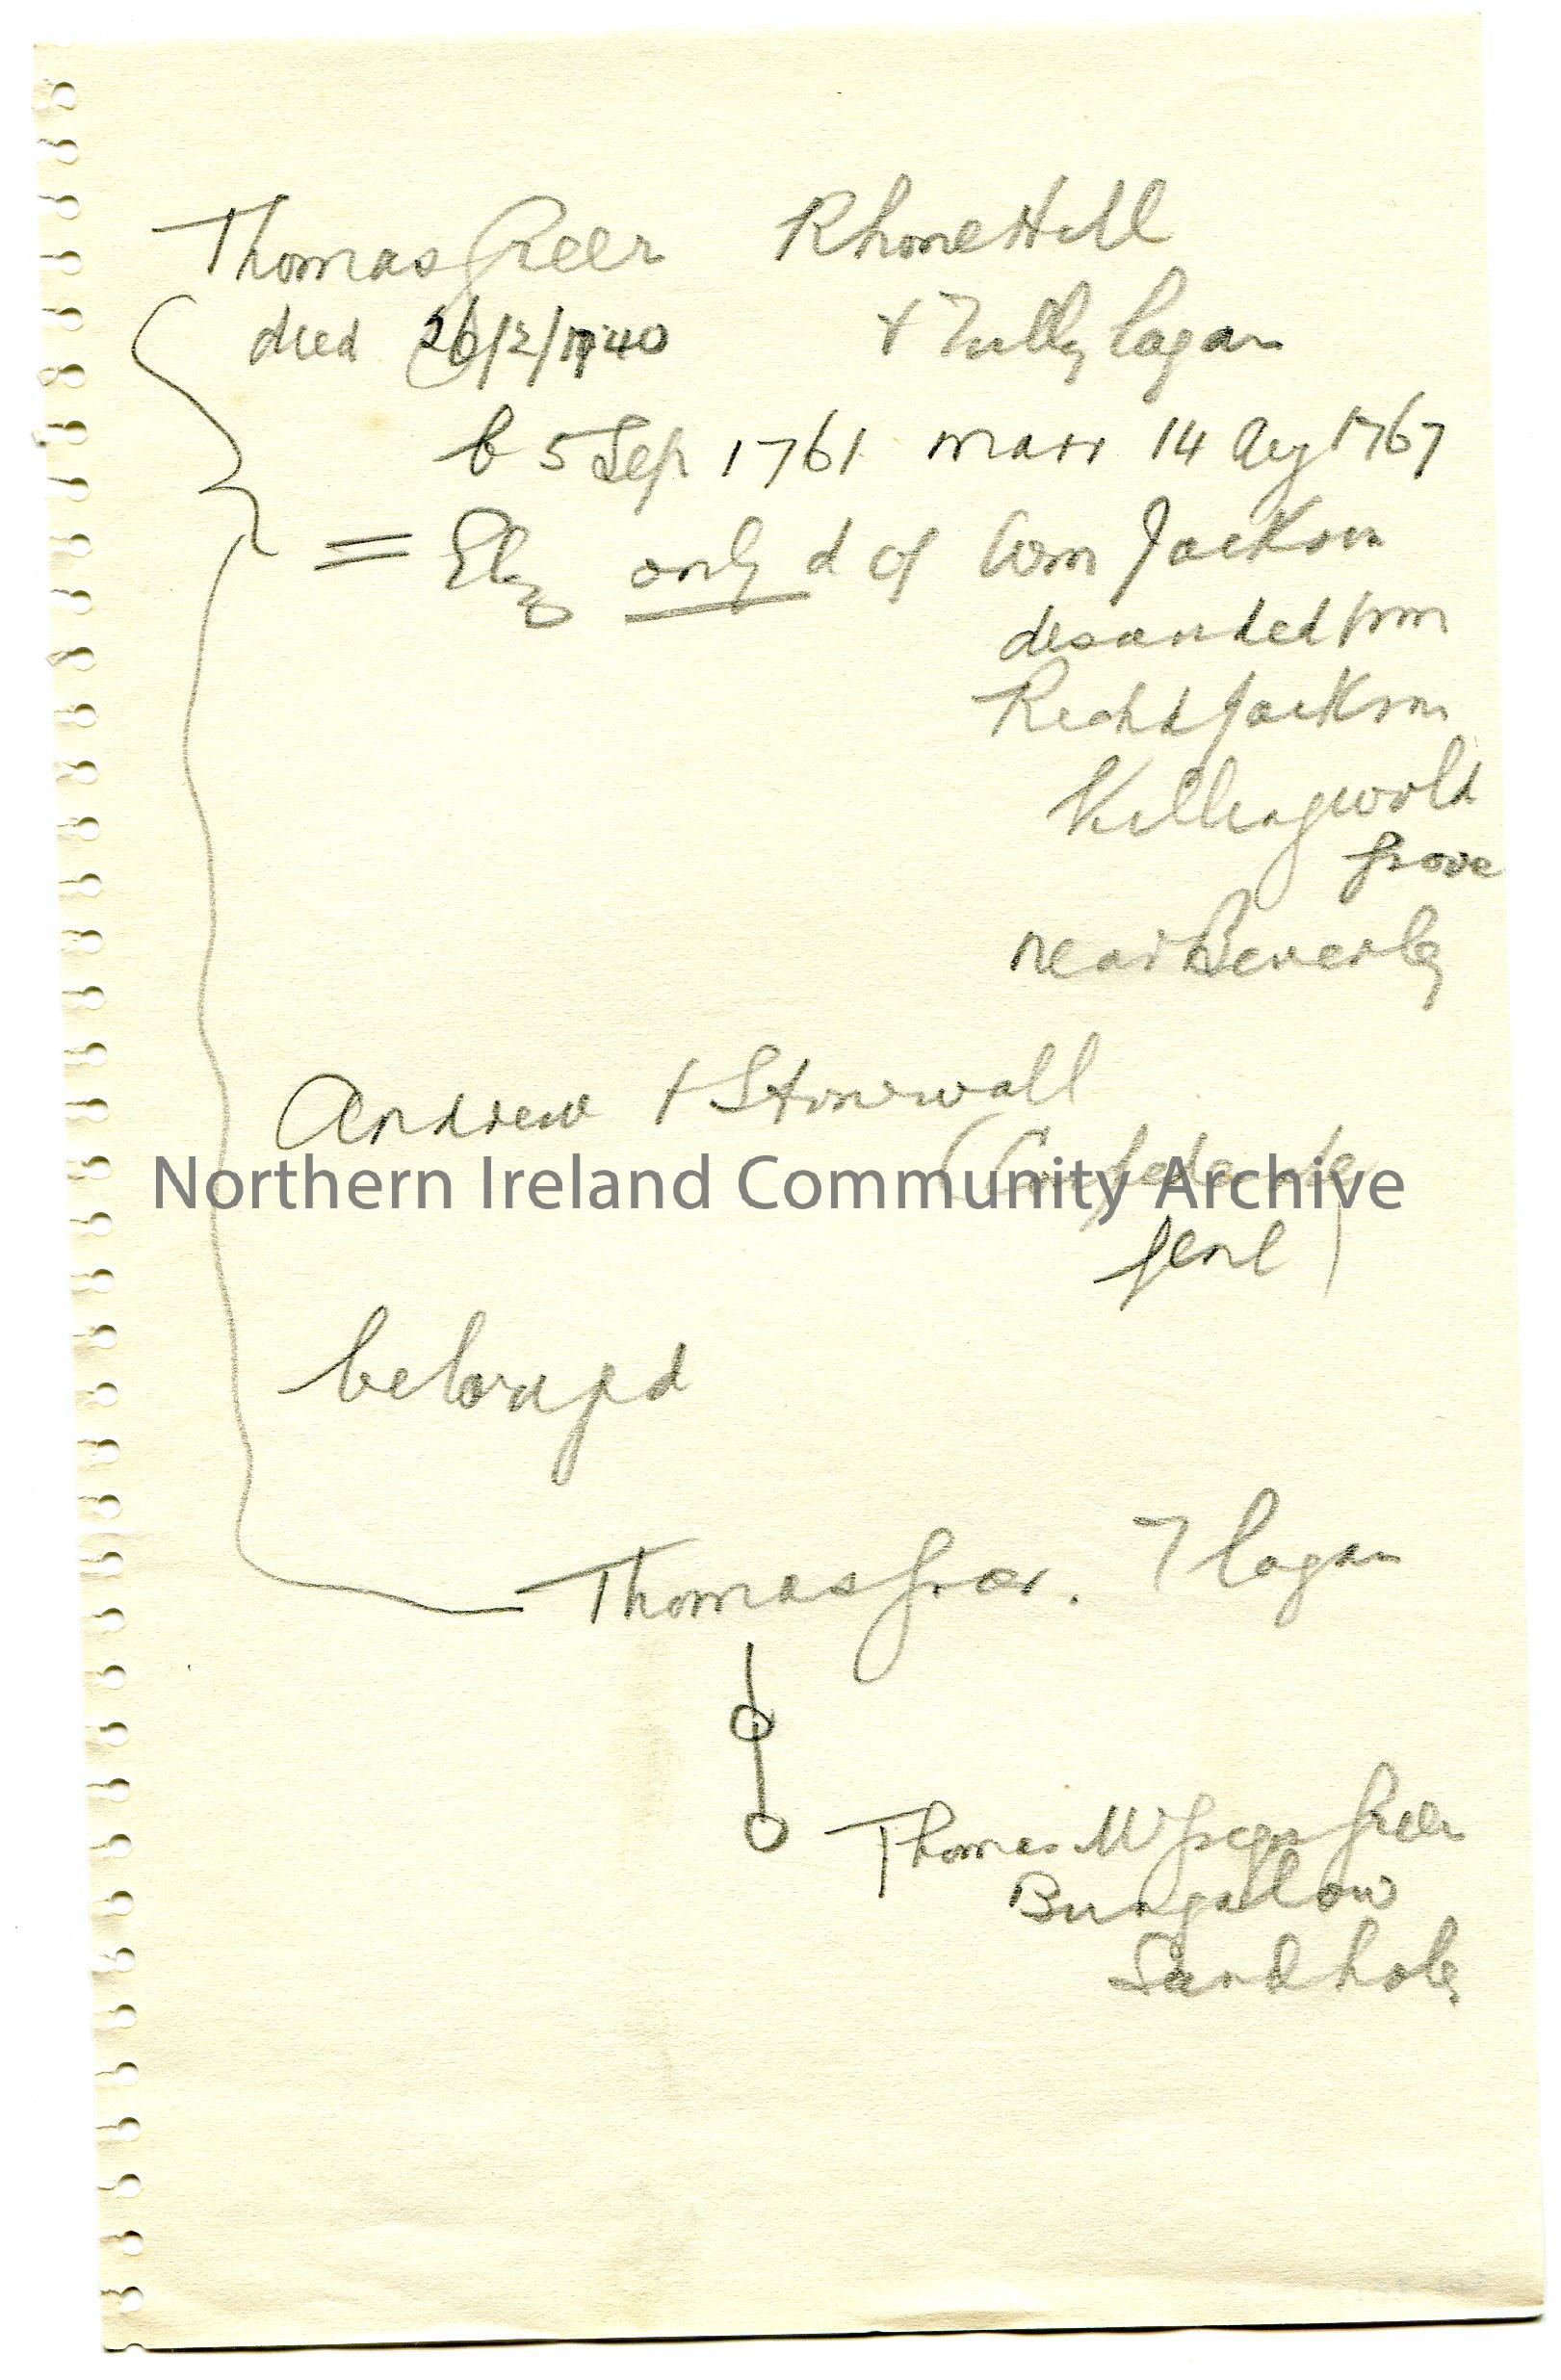 Thomas Greer Rhone Hill
died 26/2/1940 & Tullylagan
b 5 Sep 1761 marr 14 Aug 1767
= Eliz only d of Wm Jackson
descended from
Richd Jackson
Killingwold
Grove
near Beverley
Andrew + Stonewall
(Confederate
Genl)
belongd
Northern Ireland Community Archive
Thomas Greer. T lagan
Thomas McGregor Greer
Bungallow
Sandholes